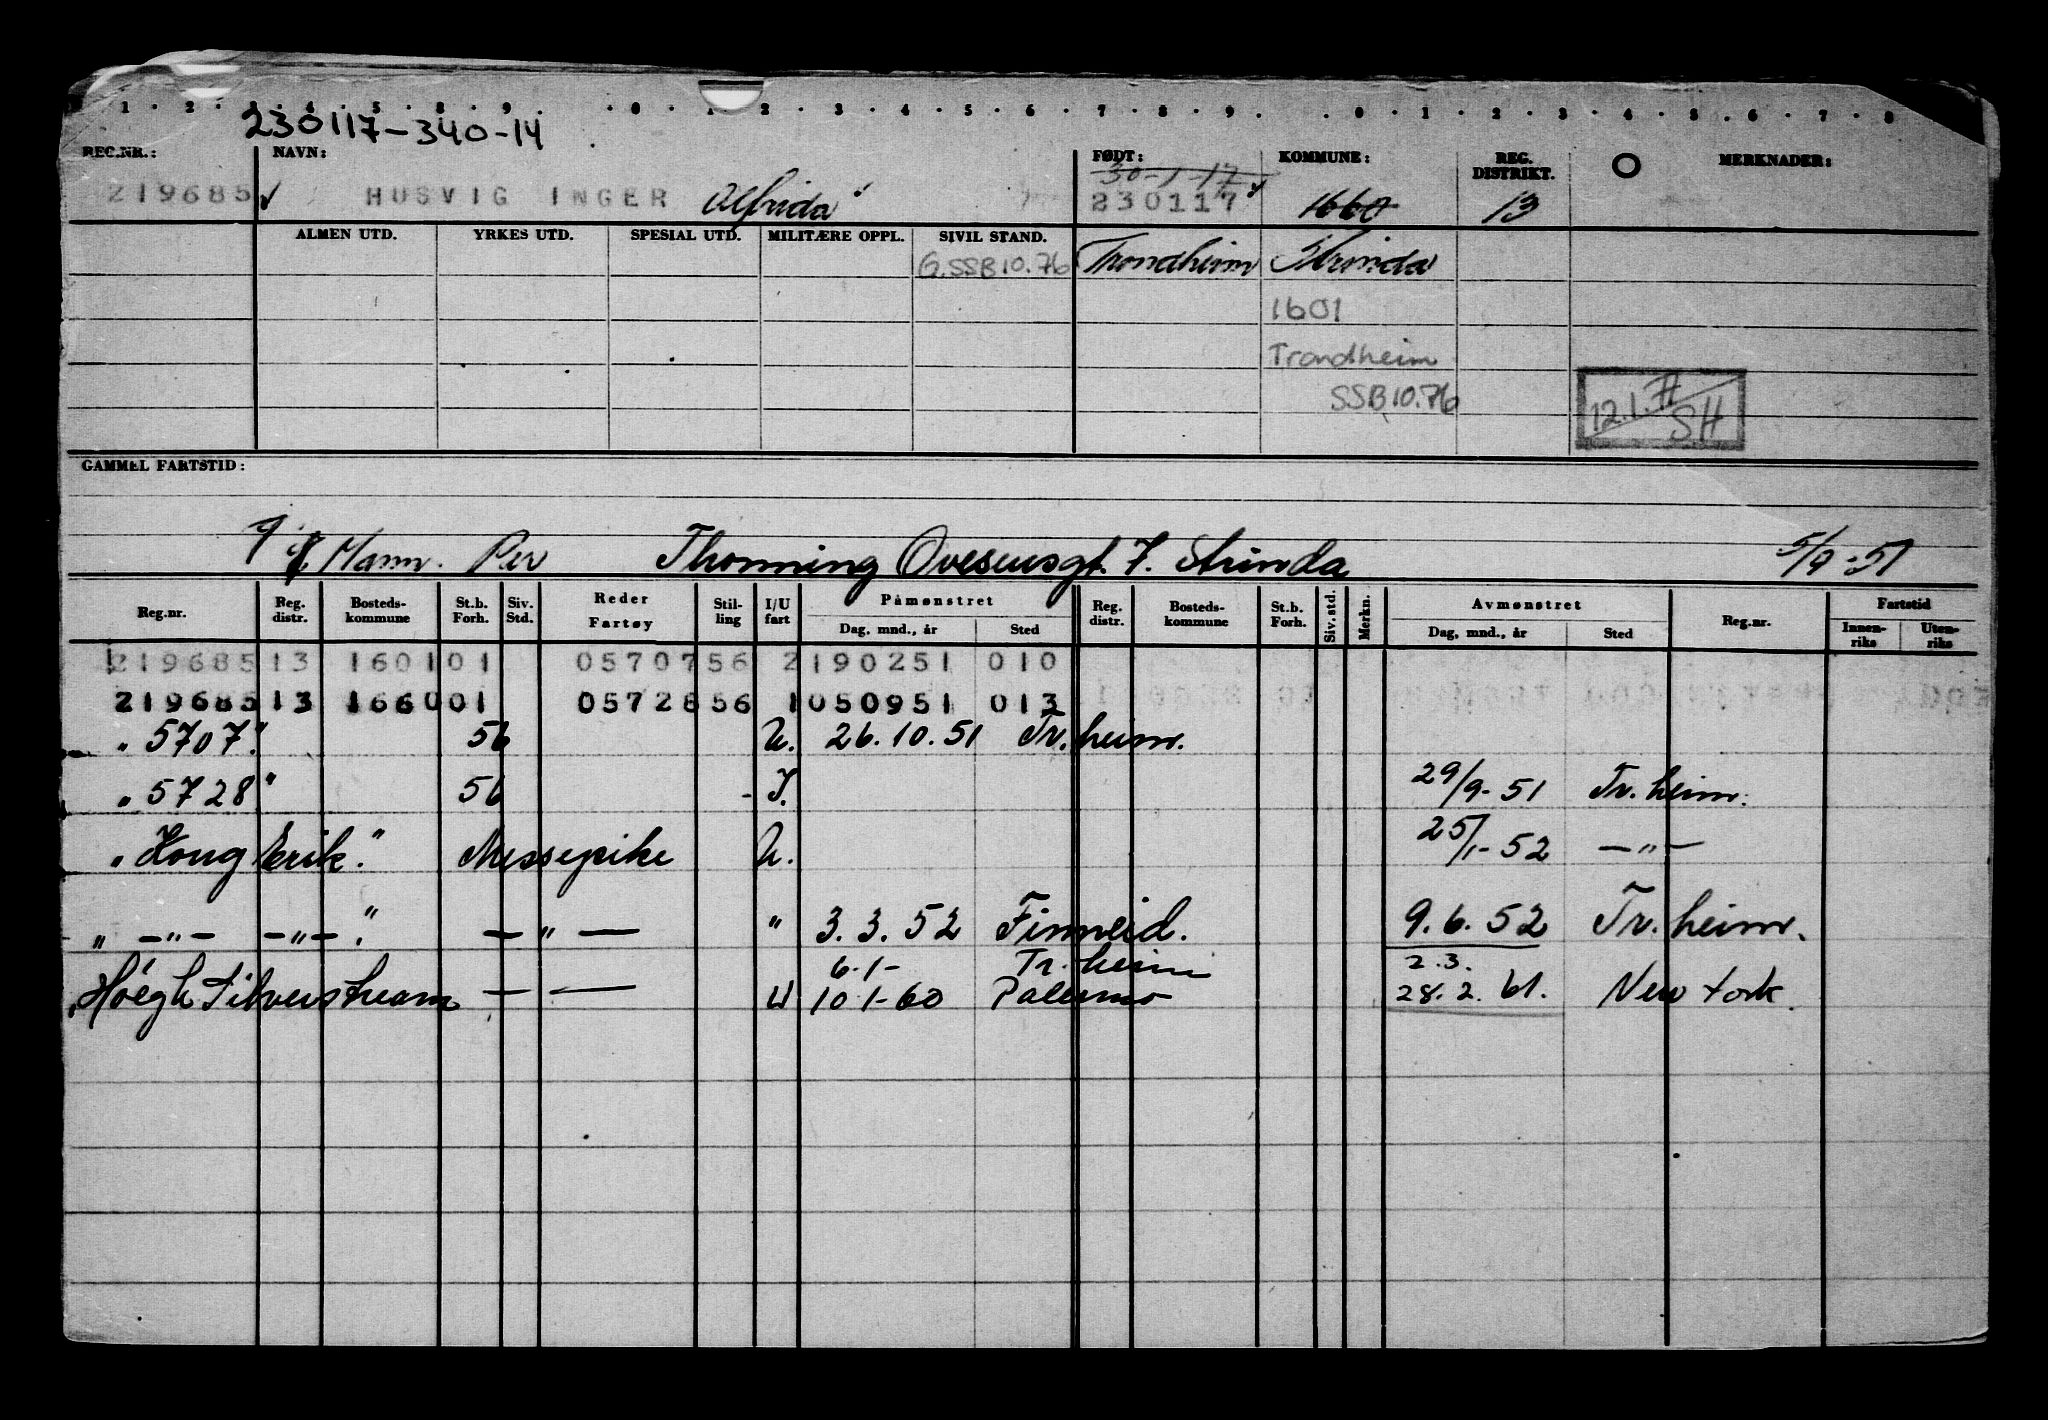 1 . 2 . 3 . 4 . 5 . 8 . 9 . . 0 . 1 . 2 . 3 . 4 . 5 . 6 . 7 . 8 . 9 . . 0 . 1 . 2 . 3 . 4 . 5 . 6 . 7 . 8
230117-340-14
REG.NR.: NAVN: FØDT: KOMMUNE: REG. DISTRIKT. O MERKNADER:
30-1-17
219685 HUSVIG INGER Alfrida 230117 1660 13
ALMEN UTD. YRKES UTD. SPESIAL UTD. MILITÆRE OPPL. SIVIL STAND.
G.SSB10.76 Trondheim Strinda
1601
Trondheim
SSB10.76
12.1.77 SH
GAMMEL FARTSTID:
Mann. Per Thonning Owesensgt. 7. Strinda 5/9-51
Reg.nr. Reg. distr. Bosteds-kommune St.b. Forh. Siv. Std. Reder Fartøy Stil-ling I/U fart Påmønstret Reg. distr. Bosteds-kommune St.b. Forh. Siv. std. Merkn. Avmønstret Reg.nr. Fartstid
Dag, mnd., år Sted Dag, mnd., år Sted Innen-riks Uten-riks
219685 13 160101 0570756 2190251 010
219685 13 166001 0572856 1050951 013
"5707" 56 U. 26.10.51 Tr.heim.
"5728" 56 - I. 29/9-51 Tr.heim.
"Kong Erik." Messepike U. 25/1-52 —"—
" —"— —"— ." — " — " 3.3.52 Finneid. 9.6.52 Tr.heim.
6.1- Tr.heim 2.3.
Høegh Silverstream — — U 10.1-60 Palermo 28.2.61. New York.